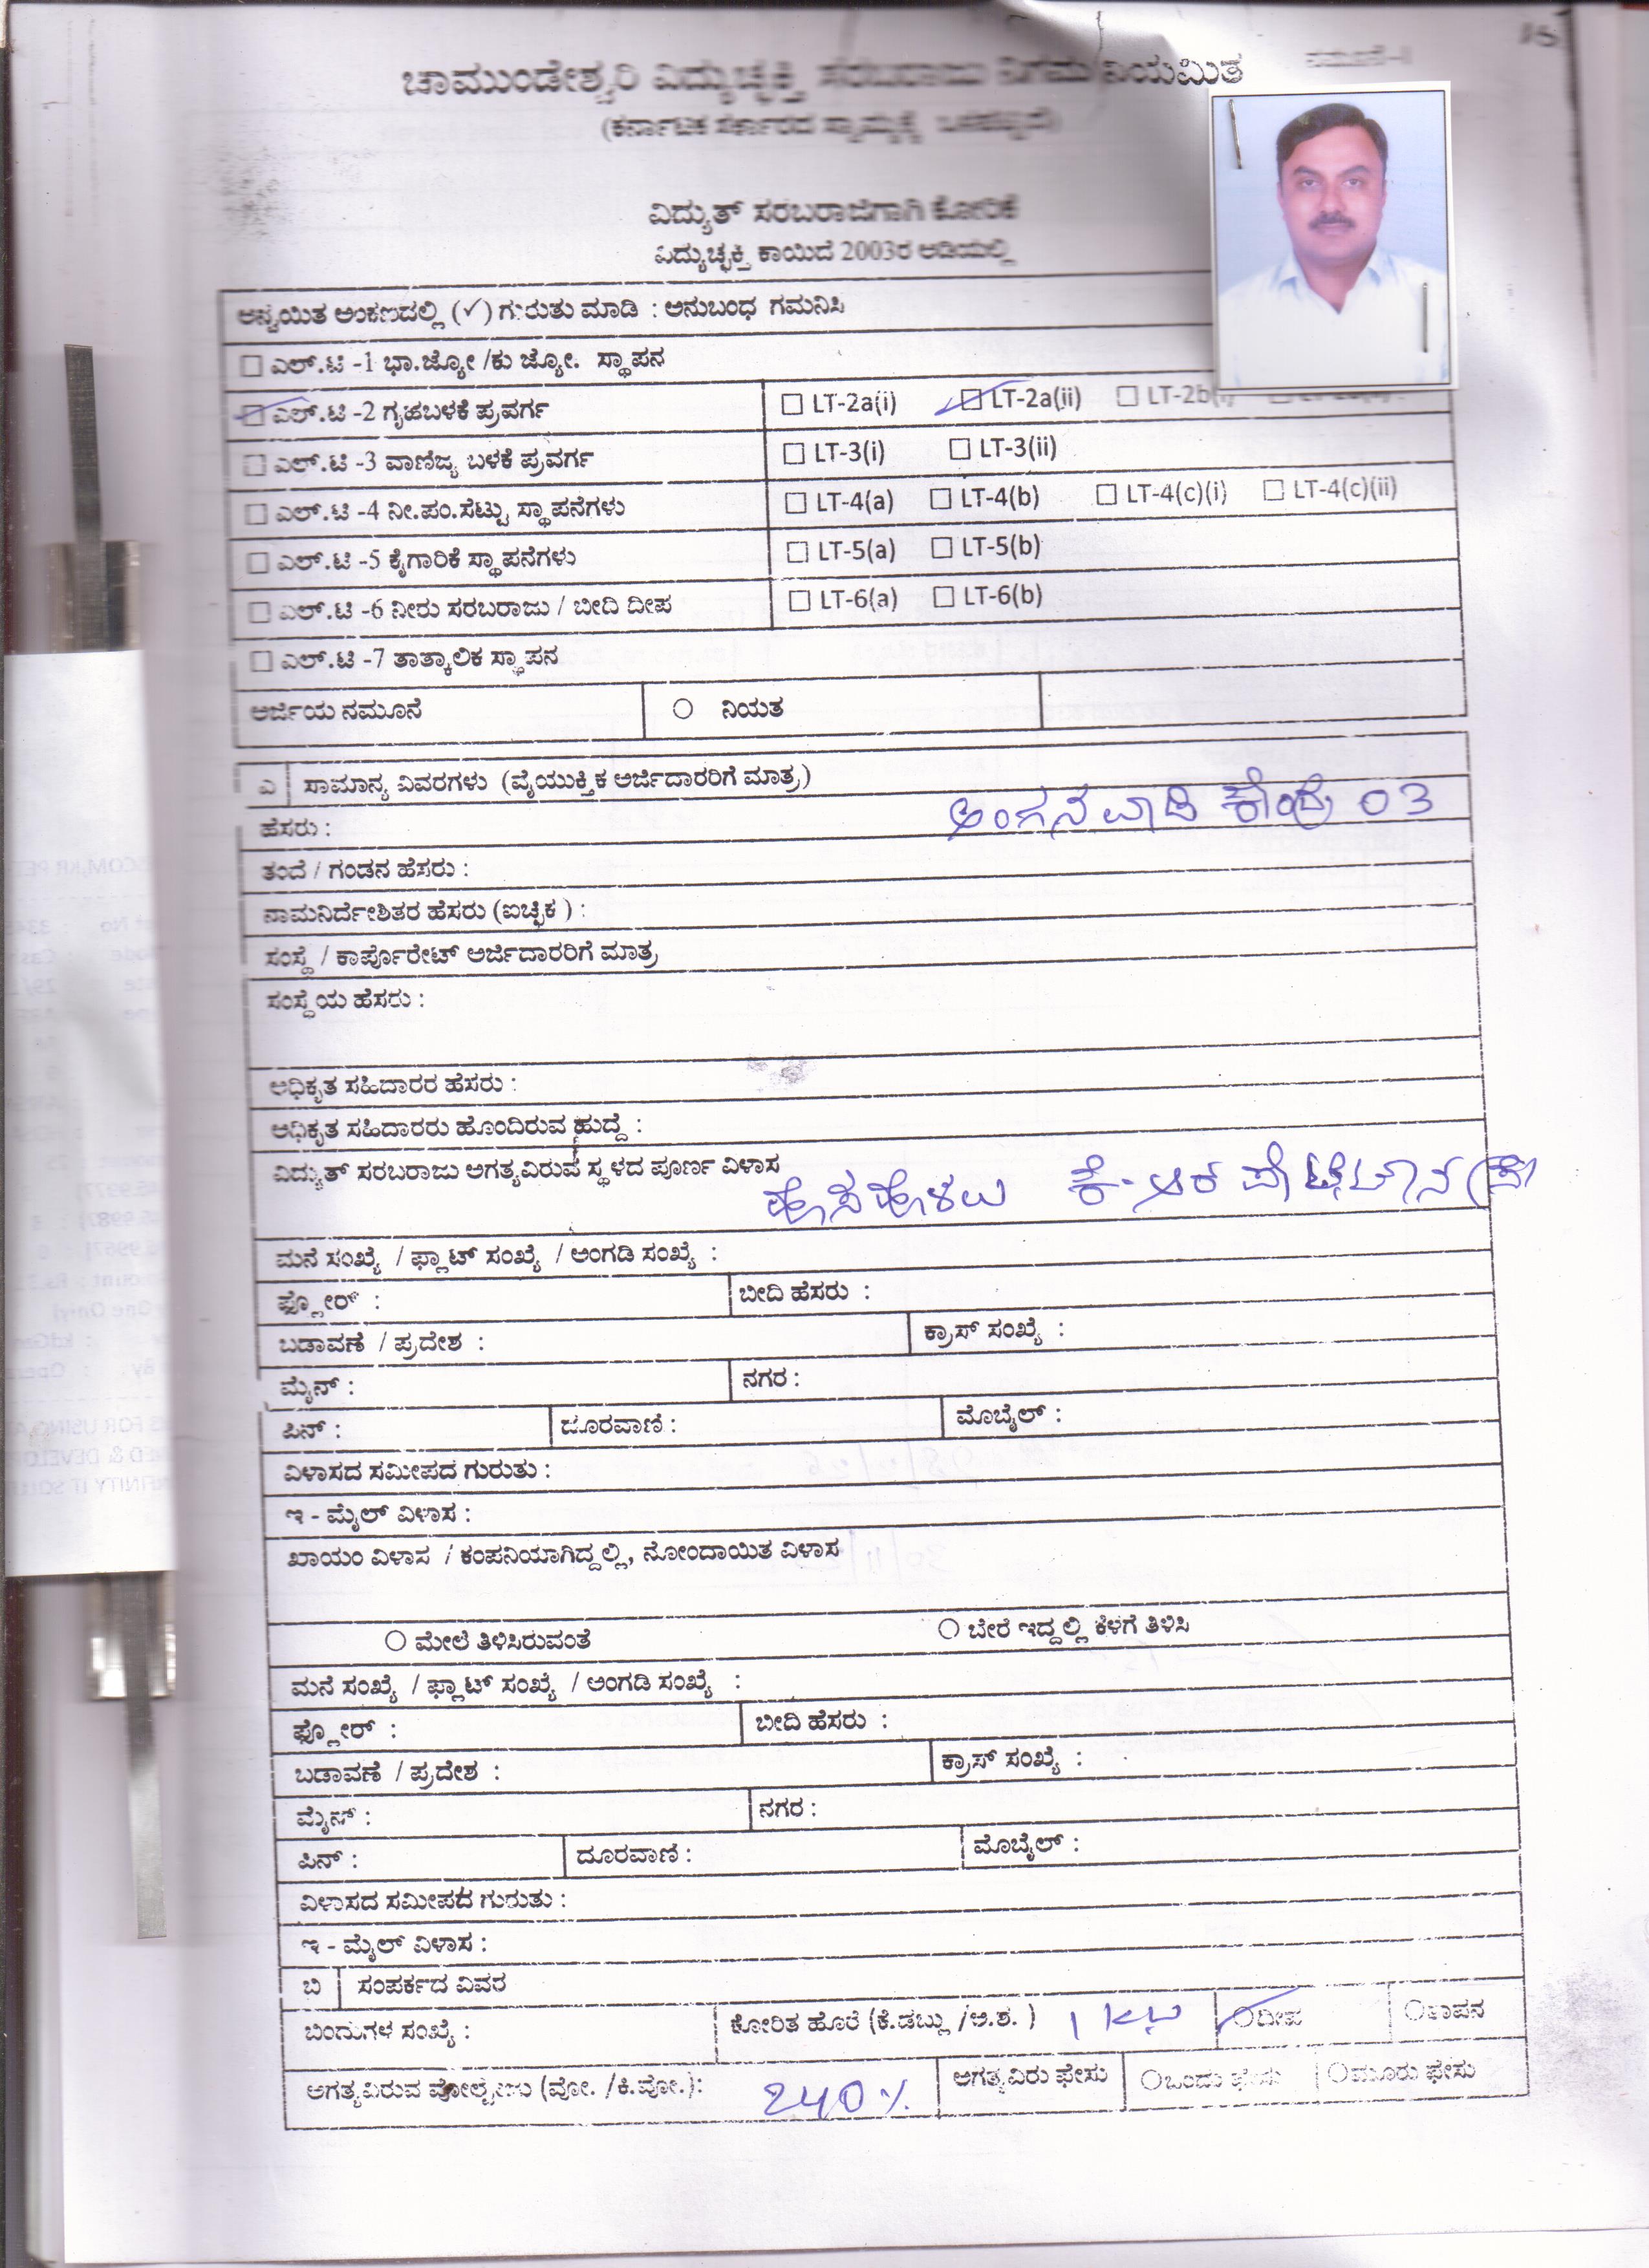 ನಮೂನೆ-1
ಚಾಮುಂಡೇಶ್ವರಿ ವಿದ್ಯುಚ್ಛಕ್ತಿ ಸರಬರಾಜು ನಿಗಮ ನಿಯಮಿತ
(ಕರ್ನಾಟಕ ಸರ್ಕಾರದ ಸ್ವಾಮ್ಯಕ್ಕೆ ಒಳಪಟ್ಟಿದೆ)
ವಿದ್ಯುತ್ ಸರಬರಾಜಿಗಾಗಿ ಕೋರಿಕೆ
ವಿದ್ಯುಚ್ಛಕ್ತಿ ಕಾಯಿದೆ 2003ರ ಅಡಿಯಲ್ಲಿ
ಅನ್ವಯಿತ ಅಂಕಣದಲ್ಲಿ (✓) ಗುರುತು ಮಾಡಿ : ಅನುಬಂಧ ಗಮನಿಸಿ
☐ ಎಲ್.ಟಿ -1 ಭಾ.ಜ್ಯೋ /ಕು ಜ್ಯೋ. ಸ್ಥಾಪನ
☑ ಎಲ್.ಟಿ -2 ಗೃಹಬಳಕೆ ಪ್ರವರ್ಗ ☐ LT-2a(i) ☑ LT-2a(ii) ☐ LT-2b(i)
☐ ಎಲ್.ಟಿ -3 ವಾಣಿಜ್ಯ ಬಳಕೆ ಪ್ರವರ್ಗ ☐ LT-3(i) ☐ LT-3(ii)
☐ ಎಲ್.ಟಿ -4 ನೀ.ಪಂ.ಸೆಟ್ಟು ಸ್ಥಾಪನೆಗಳು ☐ LT-4(a) ☐ LT-4(b) ☐ LT-4(c)(i) ☐ LT-4(c)(ii)
☐ ಎಲ್.ಟಿ -5 ಕೈಗಾರಿಕೆ ಸ್ಥಾಪನೆಗಳು ☐ LT-5(a) ☐ LT-5(b)
☐ ಎಲ್.ಟಿ -6 ನೀರು ಸರಬರಾಜು / ಬೀದಿ ದೀಪ ☐ LT-6(a) ☐ LT-6(b)
☐ ಎಲ್.ಟಿ -7 ತಾತ್ಕಾಲಿಕ ಸ್ಥಾಪನ
ಅರ್ಜಿಯ ನಮೂನೆ ○ ನಿಯತ
ಎ ಸಾಮಾನ್ಯ ವಿವರಗಳು (ವೈಯುಕ್ತಿಕ ಅರ್ಜಿದಾರರಿಗೆ ಮಾತ್ರ)
ಹೆಸರು : ಅಂಗನವಾಡಿ ಕೇಂದ್ರ 03
ತಂದೆ / ಗಂಡನ ಹೆಸರು :
ನಾಮನಿರ್ದೇಶಿತರ ಹೆಸರು (ಐಚ್ಛಿಕ ) :
ಸಂಸ್ಥೆ / ಕಾರ್ಪೊರೇಟ್ ಅರ್ಜಿದಾರರಿಗೆ ಮಾತ್ರ
ಸಂಸ್ಥೆಯ ಹೆಸರು :
ಅಧಿಕೃತ ಸಹಿದಾರರ ಹೆಸರು :
ಅಧಿಕೃತ ಸಹಿದಾರರು ಹೊಂದಿರುವ ಹುದ್ದೆ :
ವಿದ್ಯುತ್ ಸರಬರಾಜು ಅಗತ್ಯವಿರುವ ಸ್ಥಳದ ಪೂರ್ಣ ವಿಳಾಸ
ಹೊಸಹೊಳಲು ಕೆ-ಆರ
ಮನೆ ಸಂಖ್ಯೆ / ಫ್ಲಾಟ್ ಸಂಖ್ಯೆ / ಅಂಗಡಿ ಸಂಖ್ಯೆ :
ಫ್ಲೋರ್ : ಬೀದಿ ಹೆಸರು :
ಬಡಾವಣೆ / ಪ್ರದೇಶ : ಕ್ರಾಸ್ ಸಂಖ್ಯೆ :
ಮೈನ್ : ನಗರ :
ಪಿನ್ : ದೂರವಾಣಿ : ಮೊಬೈಲ್ :
ವಿಳಾಸದ ಸಮೀಪದ ಗುರುತು :
ಇ - ಮೈಲ್ ವಿಳಾಸ :
ಖಾಯಂ ವಿಳಾಸ / ಕಂಪನಿಯಾಗಿದ್ದಲ್ಲಿ, ನೋಂದಾಯಿತ ವಿಳಾಸ
○ ಮೇಲೆ ತಿಳಿಸಿರುವಂತೆ ○ ಬೇರೆ ಇದ್ದಲ್ಲಿ ಕೆಳಗೆ ತಿಳಿಸಿ
ಮನೆ ಸಂಖ್ಯೆ / ಫ್ಲಾಟ್ ಸಂಖ್ಯೆ / ಅಂಗಡಿ ಸಂಖ್ಯೆ :
ಫ್ಲೋರ್ : ಬೀದಿ ಹೆಸರು :
ಬಡಾವಣೆ / ಪ್ರದೇಶ : ಕ್ರಾಸ್ ಸಂಖ್ಯೆ :
ಮೈನ್ : ನಗರ :
ಪಿನ್ : ದೂರವಾಣಿ : ಮೊಬೈಲ್ :
ವಿಳಾಸದ ಸಮೀಪದ ಗುರುತು :
ಇ - ಮೈಲ್ ವಿಳಾಸ :
ಬಿ ಸಂಪರ್ಕದ ವಿವರ
ಬಿಂದುಗಳ ಸಂಖ್ಯೆ : ಕೋರಿತ ಹೊರೆ (ಕೆ.ಡಬ್ಲು /ಅ.ಶ. ) 1 KW ○ದೀಪ ○ತಾಪನ
ಅಗತ್ಯವಿರುವ ವೋಲ್ಟೇಜು (ವೋ. /ಕಿ.ವೋ.): 240 ಅಗತ್ಯವಿರು ಫೇಸು ○ಒಂದು ಫೇಸು ○ಮೂರು ಫೇಸು